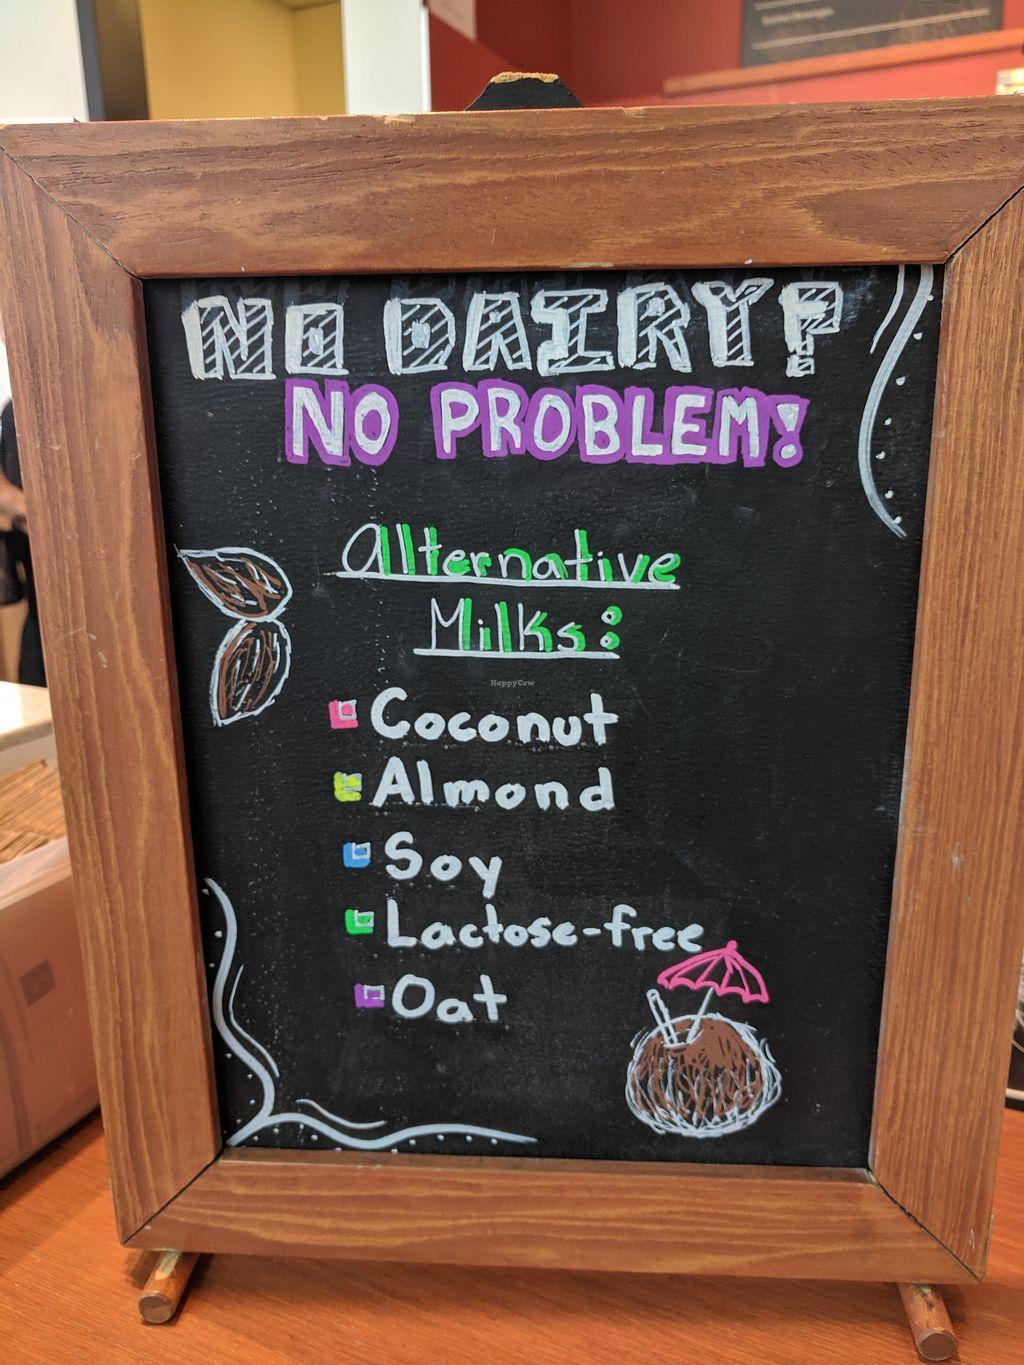 NO DAIRY?
NO PROBLEM!
Alternative
Milks:
HappyCow
Coconut
Almond
Soy
Lactose-free
Oat